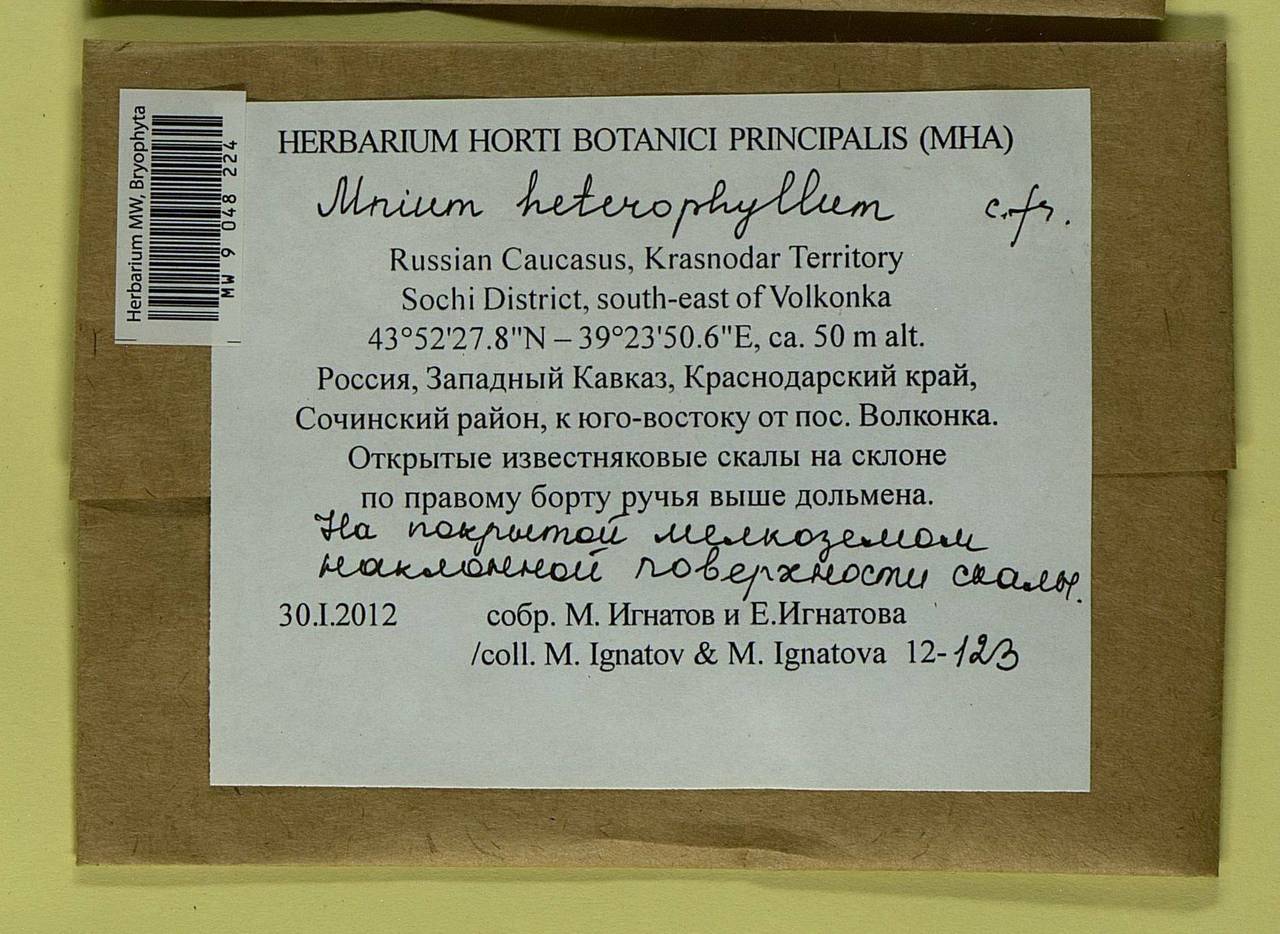 Herbarium MW, Bryophyta
MW 9 048 224
HERBARIUM HORTI BOTANICI PRINCIPALIS (MHA)
Mnium heterophyllum c. fr.
Russian Caucasus, Krasnodar Territory
Sochi District, south-east of Volkonka
43°52'27.8"N – 39°23'50.6"E, ca. 50 m alt.
Россия, Западный Кавказ, Краснодарский край,
Сочинский район, к юго-востоку от пос. Волконка.
Открытые известняковые скалы на склоне
по правому борту ручья выше дольмена.
На покрытой мелкоземом
наклонной поверхности скалы.
30.I.2012 собр. М. Игнатов и Е.Игнатова
/coll. M. Ignatov & M. Ignatova 12-123